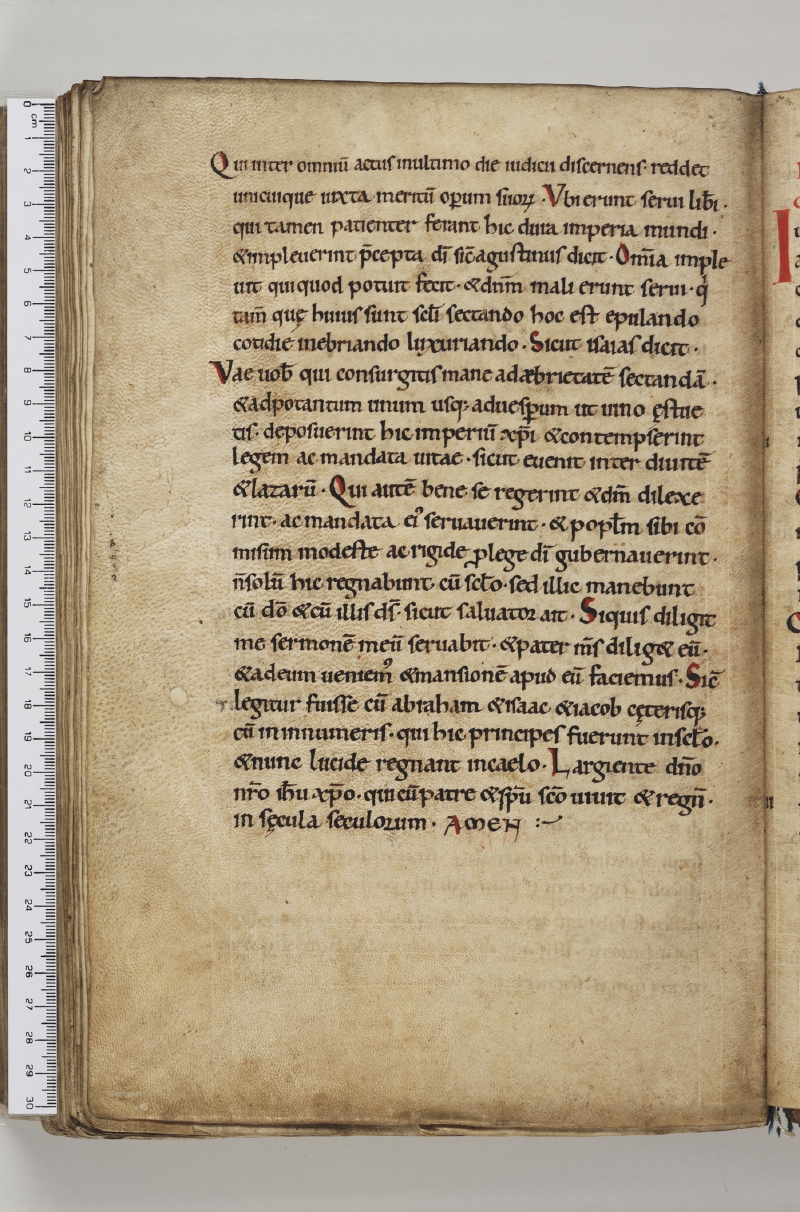 Qui inter omniū actus inultimo die iudicii discernens· reddet
unicuique iuxta meritū oꝑum suoꝝ · Vbi erunt serui lib̄i ·
qui tamen patienter ferant hic dura imperia mundi ·
&impleuerint p̄cepta dī sic̄ agustinus dicit · Om̄ia imple
uit quiquod potuit fecit · &dn̄m mali erunt serui ·
tam̄ quę huius sunt sc̄li sectando hoc est epulando
cotidie inebriando luxuriando · Sicut isaias dicit ·
Vae uob̄ qui consurgitis mane adæbrietatē sectandā ·
&adpotantum unum usq; aduesꝑum ut uino ęstue
tis· deposuerint hic imperiū xp̄i &contempserint
legem ac mandata uitae · sicut euenit inter diuitē
&lazarū · Qui autē bene se regerint &dm̄ dilexe
rint· ac mandata ei᾽ seruauerint · &popl̄m sibi cō
misum modeste ac rigide ꝓlege dī gubernauerint ·
n̄solū hic regnabunt· cū sc̄lo· sed illic manebunt
cū dō &cū illis ds̄· sicut saluator ait · Siquis diligit
me sermonē meū seruabit · &pater m̄s dilig& eū ·
&adeum ueniem᾽ &mansionē apud eū faciemus · Sic̄
legitur fuisse cū abraham &isaac &iacob cęterisq;
cū innumeris· qui hic principes fuerunt insc̄lo.
&nunc lucide regnant incaelo · Largiente dn̄o
nr̄o ih̄u xp̄o · qui cū patre &sp̄u sc̄o uiuit &regn̄ ·
in sęcula seculorum · AMEN :~
I